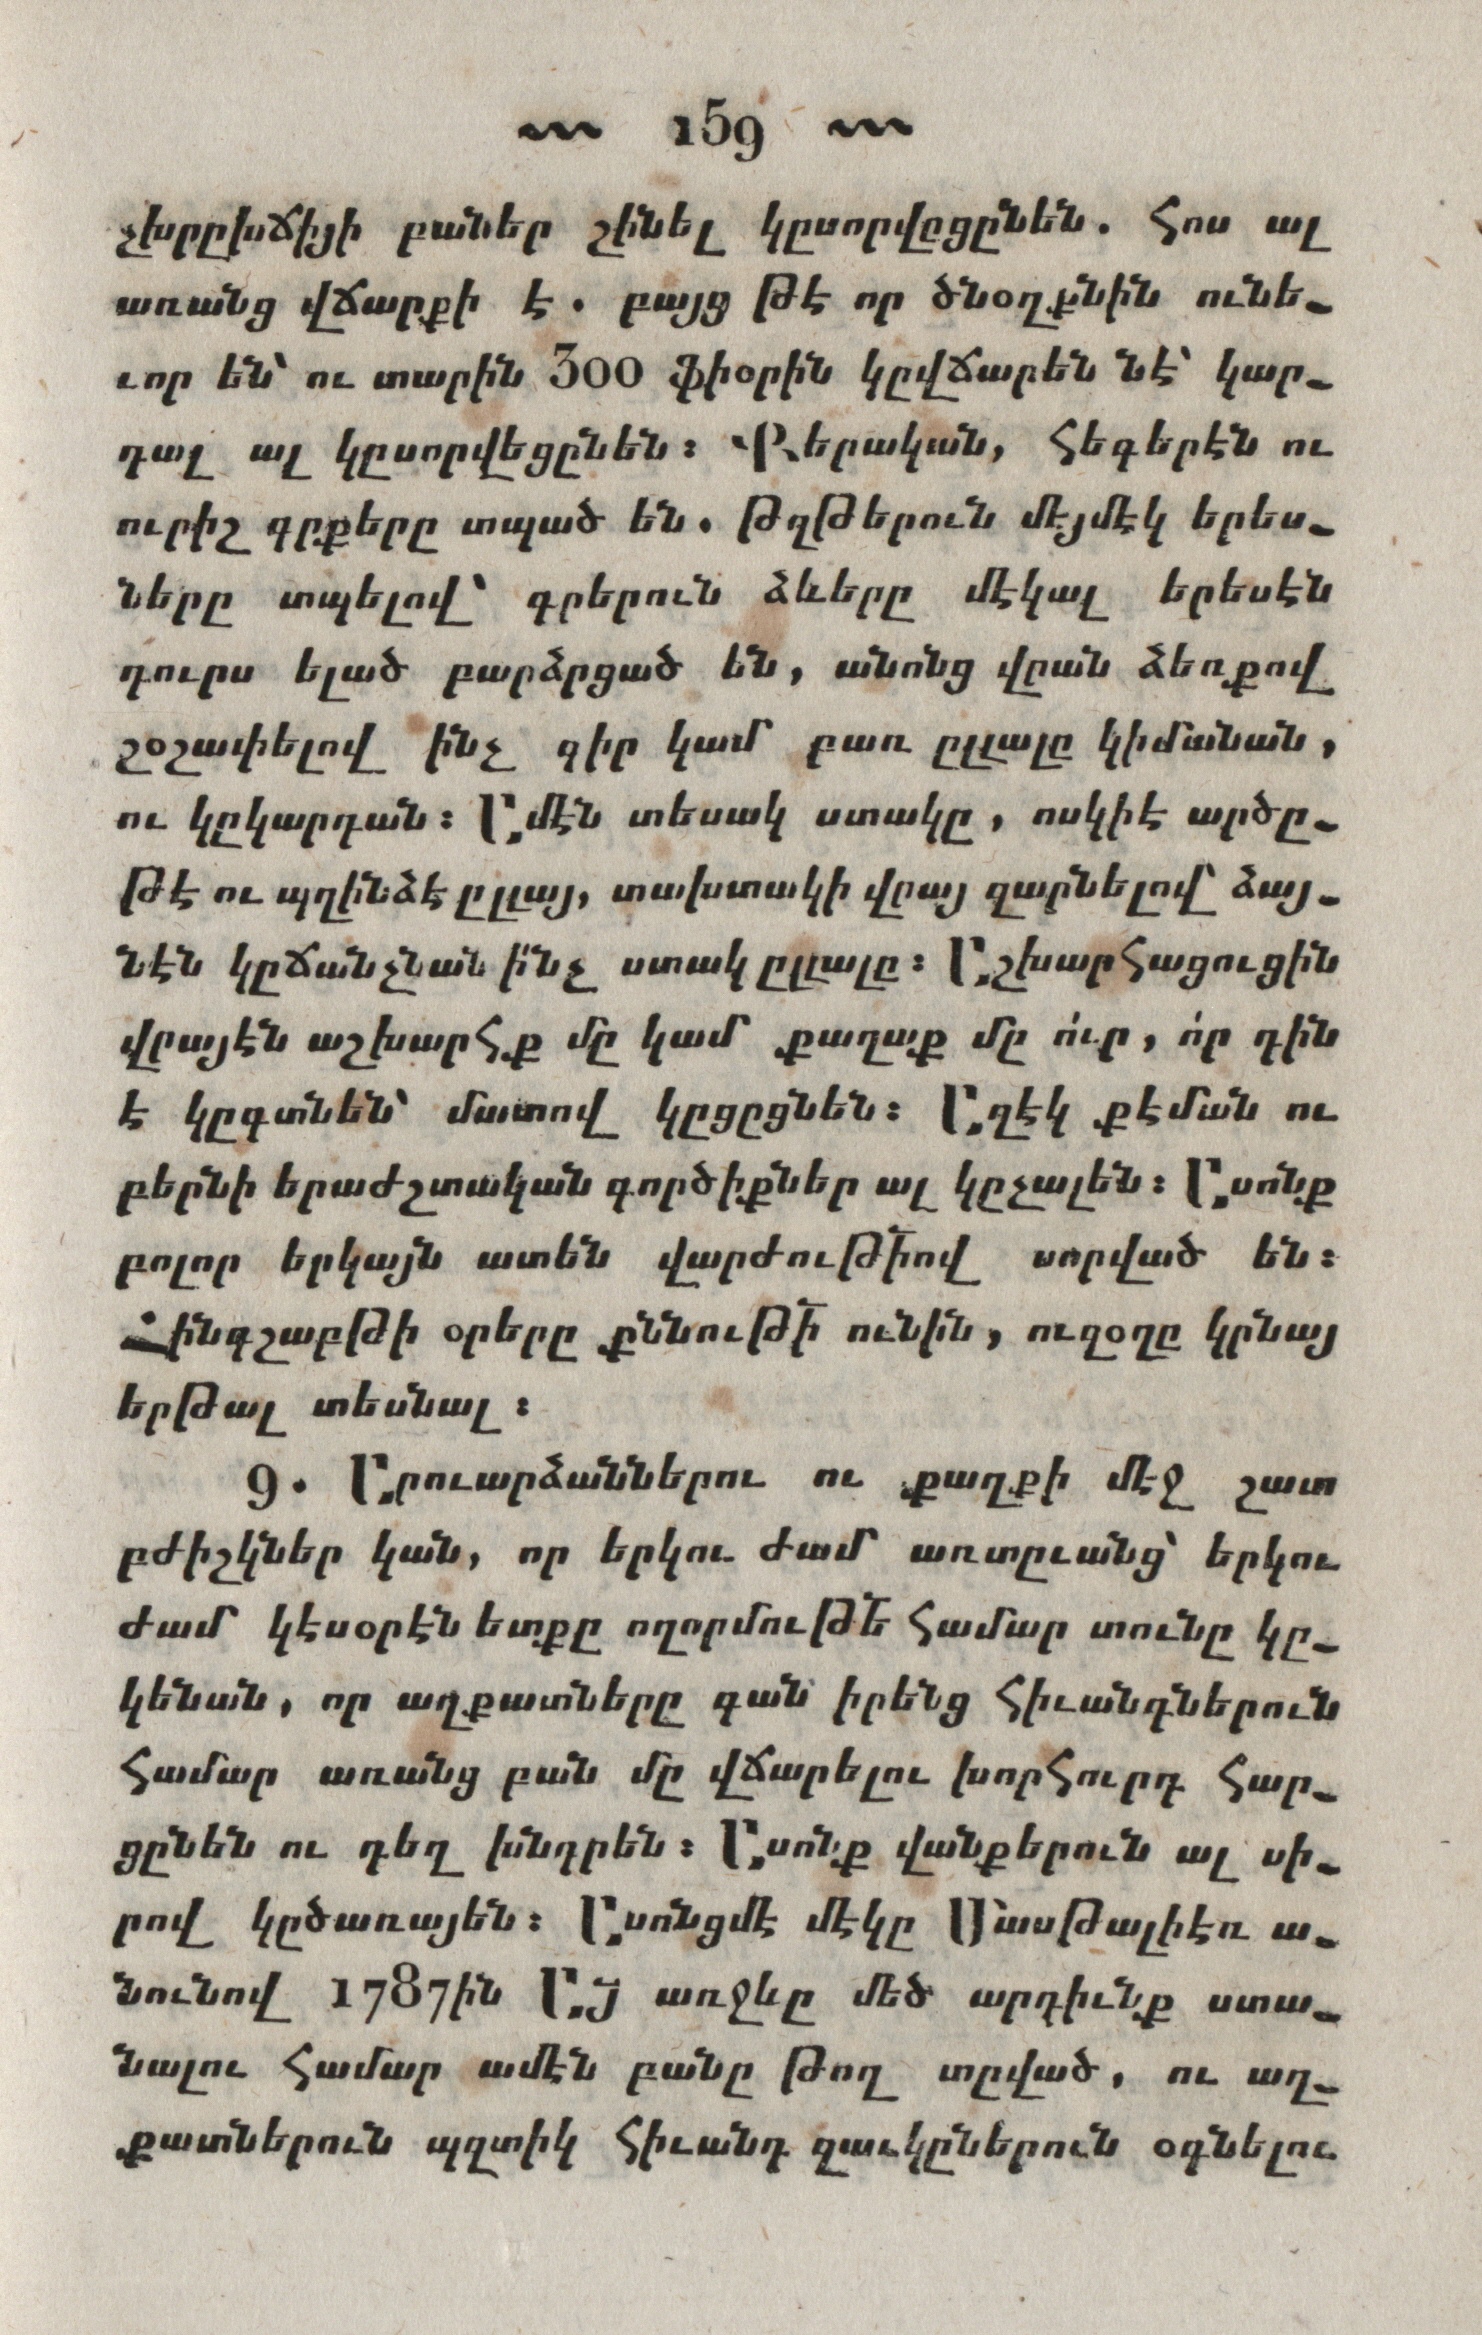 159
չխրըխճիյի բաներ շինել կըսորվըցընեն. հոս ալ
առանց վճարքի է. բայց թէ որ ծնօղքնին ունե֊
ւոր են՝ ու տարին 300 ֆիօրին կըվճարեն նէ՝ կար֊
դալ ալ կըսորվեցընեն։ Քերական, հեգերէն ու
ուրիշ գրքերը տպած են. թղթերուն մէյմէկ երես֊
ները տպելով՝ գրերուն ձևերը մէկալ երեսէն
դուրս ելած բարձրցած են, անոնց վըան ձեռքով
շօշափելով ինչ գիր կամ բառ ըլլալը կիմանան,
ու կըկարդան։ Ամէն տեսակ ստակը, ոսկիէ արծը֊
թէ ու պղինձէ ըլլայ, տախտակի վրայ զարնելով՝ ձայ֊
նէն կըճանչնան ի՛նչ ստակ ըլլալը։ Աշխարհացուցին
վըայէն աշխարհք մը կամ քաղաք մը ո՛ւր, ո՛ր դին
է կըգտնեն՝ մատով կըցըցնեն։ Աղէկ քէման ու
բերնի երաժշտական գործիքներ ալ կըչալեն։ Ասոնք
բոլոր երկայն ատեն վարժութիով սորված են։
Հինգշաբթի օրերը քննութի ունին, ուզօղը կրնայ
երթալ տեսնալ։
9. Արուարձաններու ու քաղքի մէջ շատ
բժիշկներ կան, որ երկու ժամ առտըւանց՝ երկու
ժամ կէսօրէն ետքը ողորմութե համար տունը կը֊
կենան, որ աղքատները գան իրենց հիւանդներուն
համար առանց բան մը վճարելու խորհուրդ հար֊
ցընեն ու դեղ խնդրեն։ Ասոնք վանքերուն ալ սի֊
րով կըծառայեն։ Ասոնցմէ մէկը Մասթալիէռ ա֊
նունով 1787ին Այ առջևը մեծ արդիւնք ստա֊
նալու համար ամէն բանը թող տըված, ու աղ֊
քատներուն պզտիկ հիւանդ զաւկըներուն օգնելու